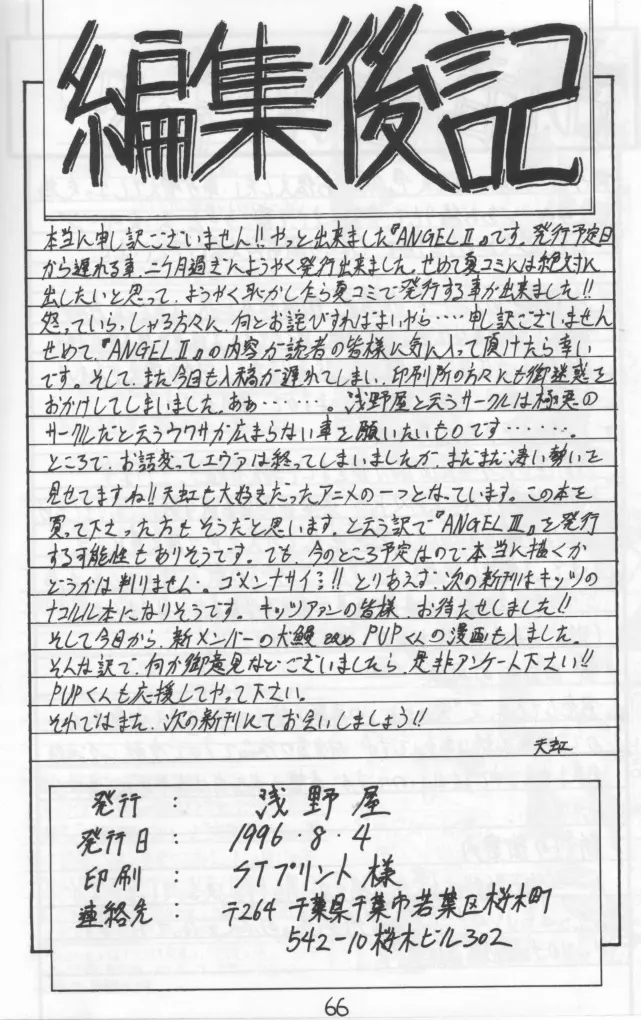 編集後記
本当に申し訳ございません!! やっと出来ました『ANGEL II』です。発行予定日
から遅れる事、二ケ月過ぎにようやく発行出来ました。せめて夏コミには絶対に
出したいと思って、ようやく恥かしたら夏コミで発行する事が出来ました!!
怒っていらっしゃる方々に、何とお詫びすればよいやら‥‥申し訳ございません
せめて、『ANGEL II』の内容が読者の皆様に気に入って頂けたら幸い
です。そして、また今回も入稿が遅れてしまい、印刷所の方々にも御迷惑を
おかけしてしまいました。ああ‥‥‥‥。浅野屋と云うサークルは極悪の
サークルだと云うウワサが広まらない事を願いたいものです‥‥‥。
ところで、お話変ってエヴァは終ってしまいましたが、まだまだ凄い勢いを
見せてますね!! 天虹も大好きだったアニメの一つとなっています。この本を
買って下さった方もそうだと思います。と云う訳で『ANGEL III』を発行
する可能性もありそうです。でも、今のところ予定なので本当に描くか
どうかは判りません。ゴメンナサイ!! とりあえず、次の新刊はキッツの
ナコルル本になりそうです。キッツファンの皆様、お待たせしました!!
そして今回から、新メンバーの犬鰻 PUPくんの漫画も入ました。
そんな訳で、何か御意見などございましたら、是非アンケート下さい!!
PUPくんも応援してやって下さい。
それではまた、次の新刊にてお会いしましょう!!
天虹
発行 : 浅野屋
発行日 : 1996・8・4
印刷 : STプリント様
連絡先 : 〒264 千葉県千葉市若葉区桜木町
542-10桜木ビル302
66